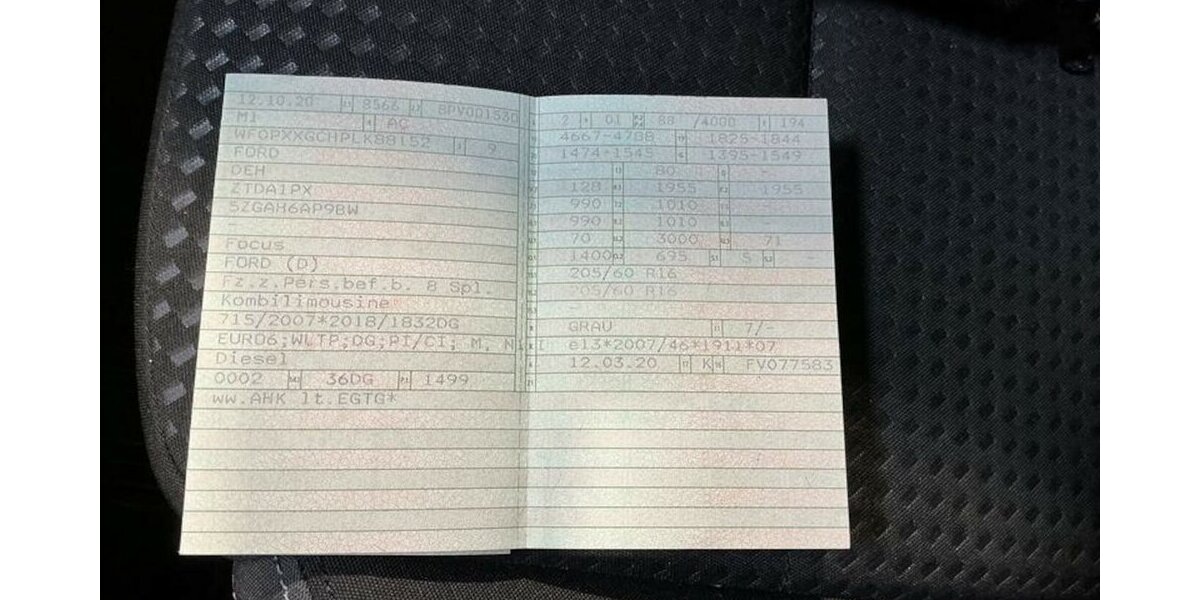 12.10.20 8566 BPV001530
M1 AC
WF0PXXGCHPLK88152 9
FORD
DEH
ZTDA1PX
5ZGAH6AP9BW
-
Focus
FORD (D)
Fz.z.Pers.bef.b. 8 Spl.
Kombilimousine
715/2007*2018/1832DG
EURO6;WLTP;DG;PI/CI; M, N1 I
Diesel
0002 36DG 1499
ww.AHK lt.EGTG*
2 01 88 /4000 194
4667-4788 1825-1844
1474-1545 1395-1549
- 80 -
128 1955 1955
990 1010 -
990 1010 -
70 3000 71
1400 695 5 -
205/60 R16
205/60 R16
-
GRAU 7/-
e13*2007/46*1911*07
12.03.20 K FV077583